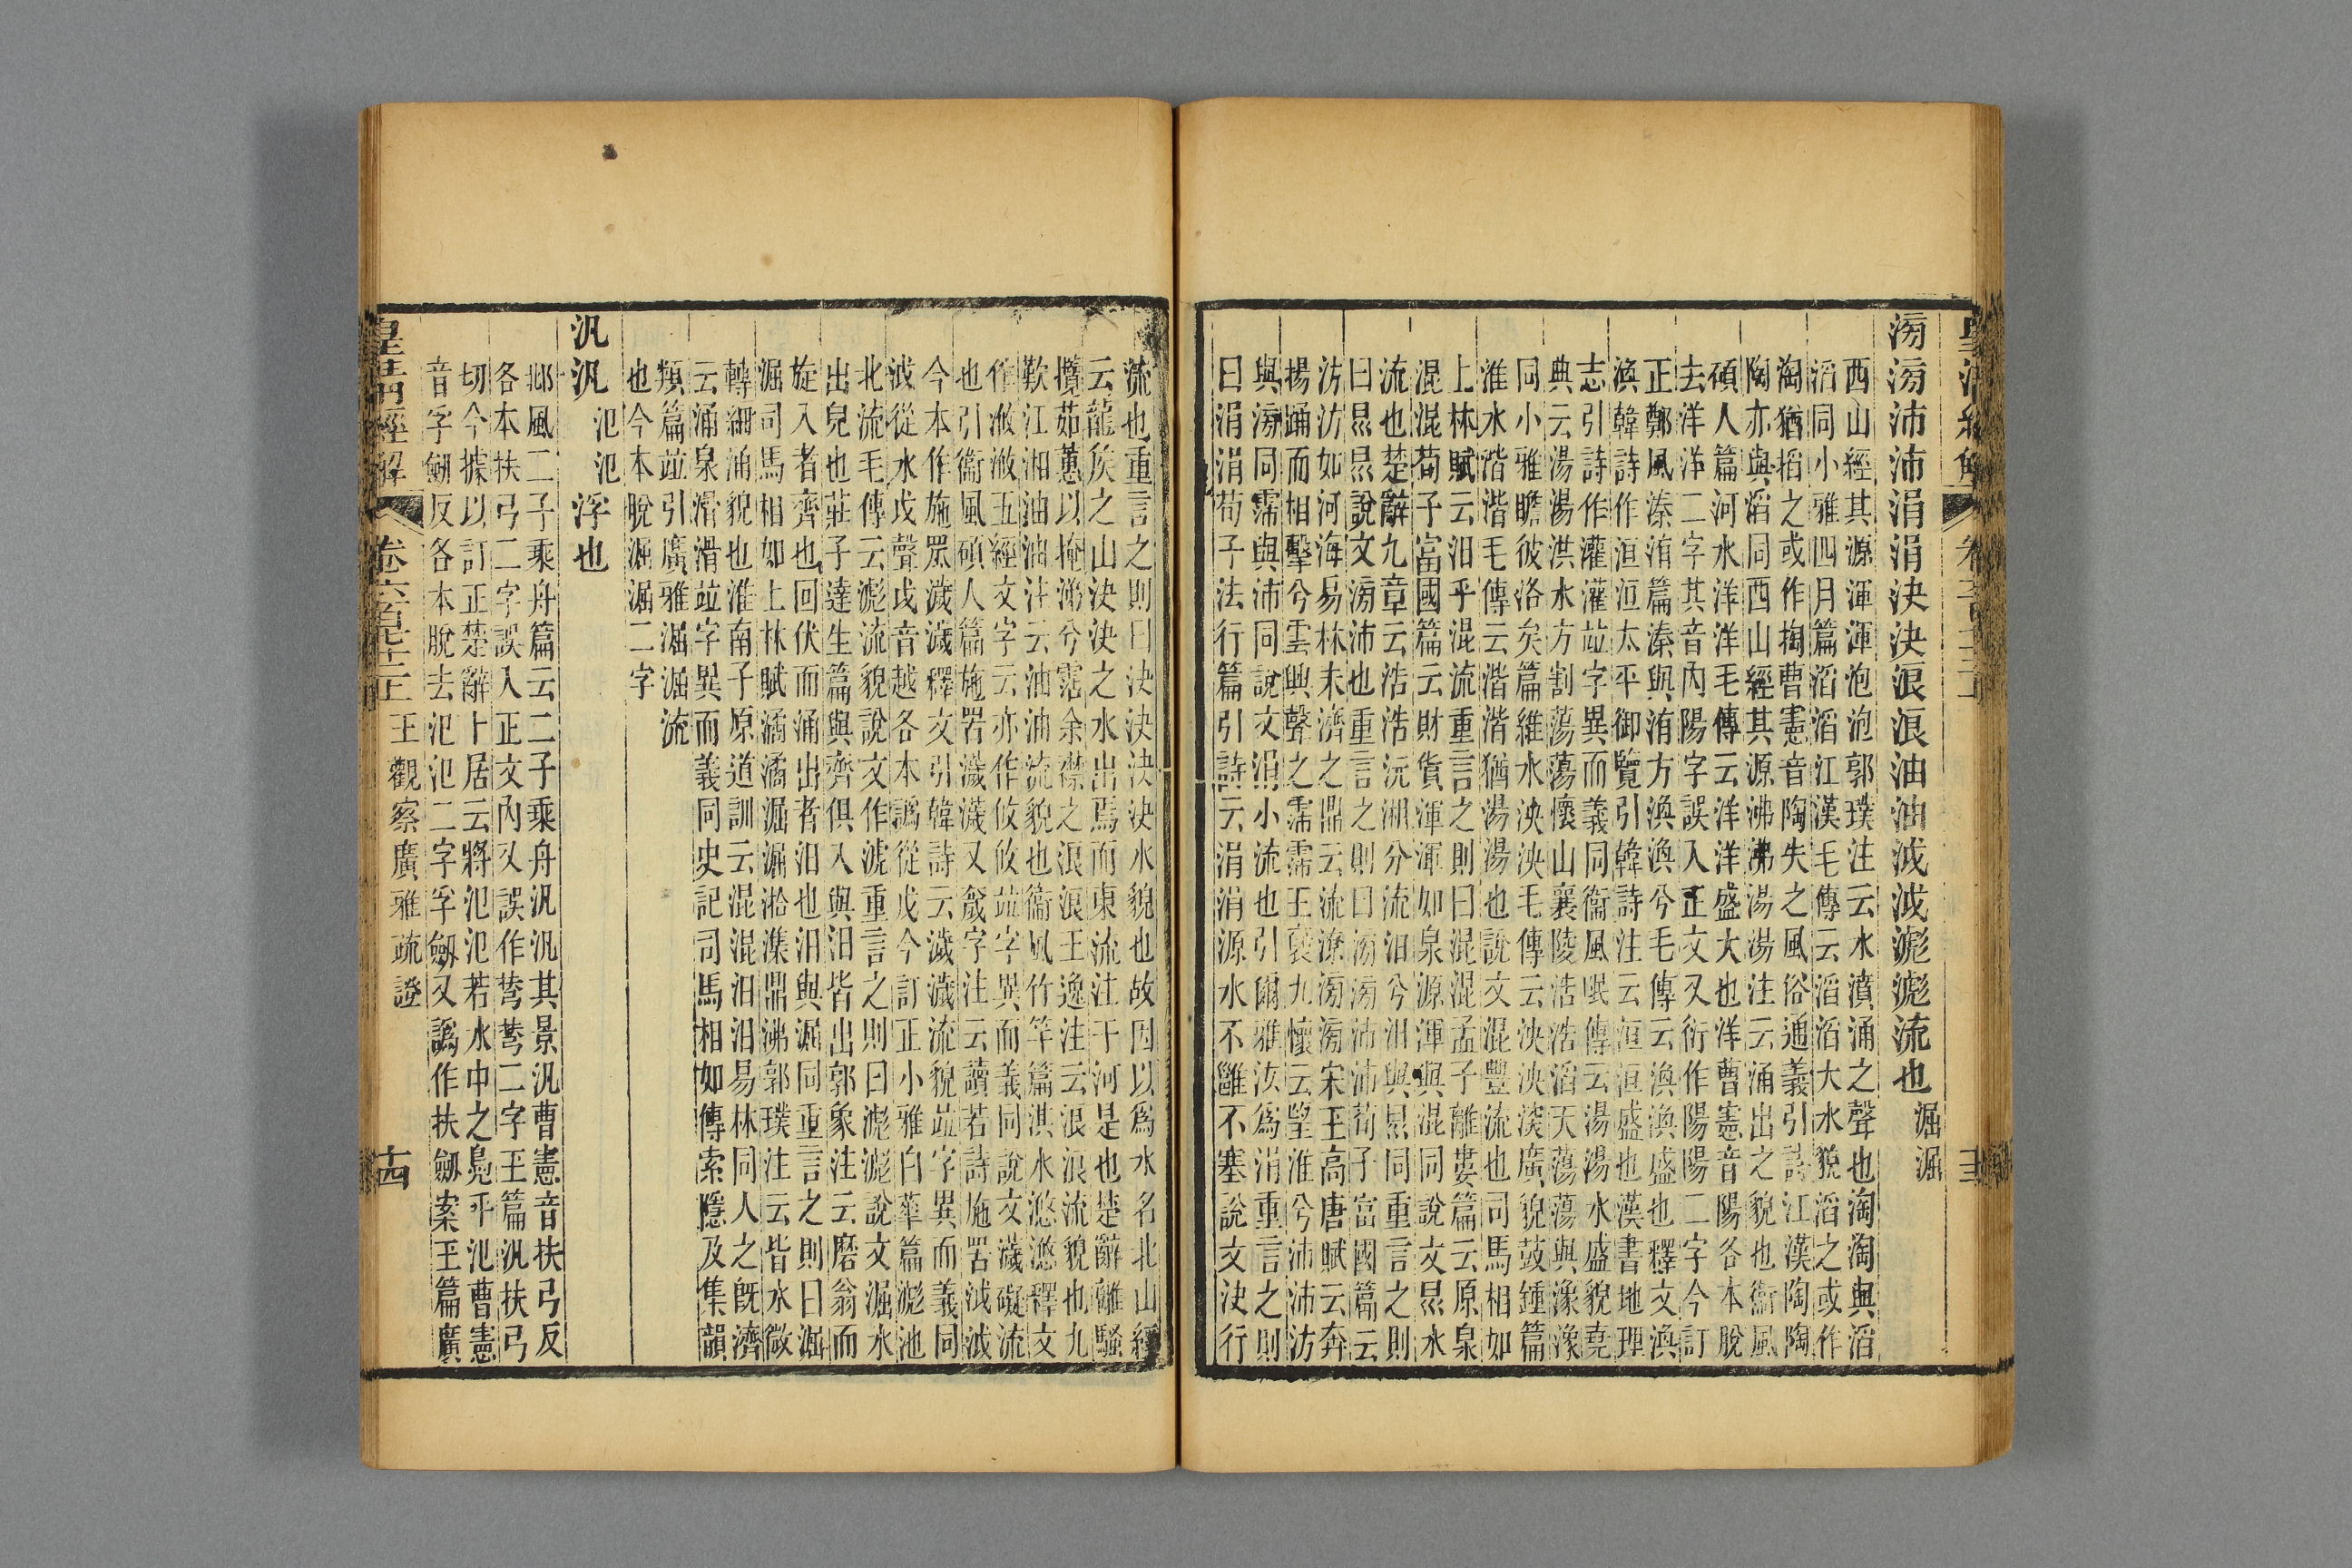 滂滂沛沛涓涓決決浪浪油油泧泧滮滮流也淈淈
西山經其源渾渾泡泡郭璞注云水濆涌之聲也淘淘與滔
滔同小雅四月篇滔滔江漢毛傳云滔滔大水貌滔之或作
淘猶搯之或作掏曹憲音陶失之風俗通義引詩江漢陶陶
陶亦與滔同西山經其源沸沸湯湯注云涌出之貌也衞風
碩人篇河水洋洋毛傳云洋洋盛大也洋曹憲音陽各本脫
去洋洋二字其音內陽字誤入正文又衍作陽陽二字今訂
正鄭風溱洧篇溱與洧方渙渙兮毛傳云渙渙盛也釋文渙
渙韓詩作洹洹太平御覽引韓詩注云洹洹盛也漢書地理
志引詩作灌灌竝字異而義同衞風氓傳云湯湯水盛貌堯
典云湯湯洪水方割蕩蕩懷山襄陵浩浩滔天蕩蕩與潒潒
同小雅瞻彼洛矣篇維水泱泱毛傳云泱泱深廣貌鼓鍾篇
淮水湝湝毛傳云湝湝猶湯湯也說文混豐流也司馬相如
上林賦云汨乎混流重言之則曰混混孟子離婁篇云原泉
混混荀子富國篇云財貨渾渾如泉源渾與混同說文㫕水
流也楚辭九章云浩浩沅湘分流汨兮汨與㫕同重言之則
曰㫕㫕說文滂沛也重言之則曰滂滂沛沛荀子富國篇云
汸汸如河海易林未濟之鼎云流潦滂滂宋玉高唐賦云奔
揚踊而相擊兮雲興聲之霈霈王褒九懷云望淮兮沛沛汸
與滂同霈與沛同說文涓小流也引爾雅汝爲涓重言之則
曰涓涓荀子法行篇引詩云涓涓源水不雝不塞說文決行
流也重言之則曰決決決水貌也故因以爲水名北山經
云龍矦之山決決之水出焉而東流注于河是也楚辭離騷
攬茹蕙以掩涕兮霑余襟之浪浪王逸注云浪浪流貌也九
歎江湘油油注云油油流貌也衞風竹竿篇淇水滺滺釋文
作浟浟五經文字云亦作攸攸竝字異而義同說文濊礙流
也引衞風碩人篇施罟濊濊又奯字注云讀若詩施罟泧泧
今本作施眾濊濊釋文引韓詩云濊濊流貌竝字異而義同
泧從水戉聲戉音越各本譌從戊今訂正小雅白華篇滮池
北流毛傳云滮流貌說文作淲重言之則曰滮滮說文淈水
出皃也莊子達生篇與齊俱入與汨皆出郭象注云磨翁而
旋入者齊也回伏而涌出者汨也汨與淈同重言之則曰淈
淈司馬相如上林賦潏潏淈淈湁潗鼎沸郭璞注云皆水微
轉細涌貌也淮南子原道訓云混混汨汨易林同人之旣濟
云涌泉滑滑竝字異而義同史記司馬相如傳索隱及集韻
類篇竝引廣雅淈淈流
也今本脫淈淈二字
汎汎氾氾浮也
邶風二子乘舟篇云二子乘舟汎汎其景汎曹憲音扶弓反
各本扶弓二字誤入正文內又誤作芎芎二字玉篇汎扶弓
切今據以訂正楚辭卜居云將氾氾若水中之鳧乎氾曹憲
音孚劒反各本脫去氾氾二字孚劒又譌作扶劒案玉篇廣
皇清經解 卷六百七十二上 王觀察廣雅疏證 十四